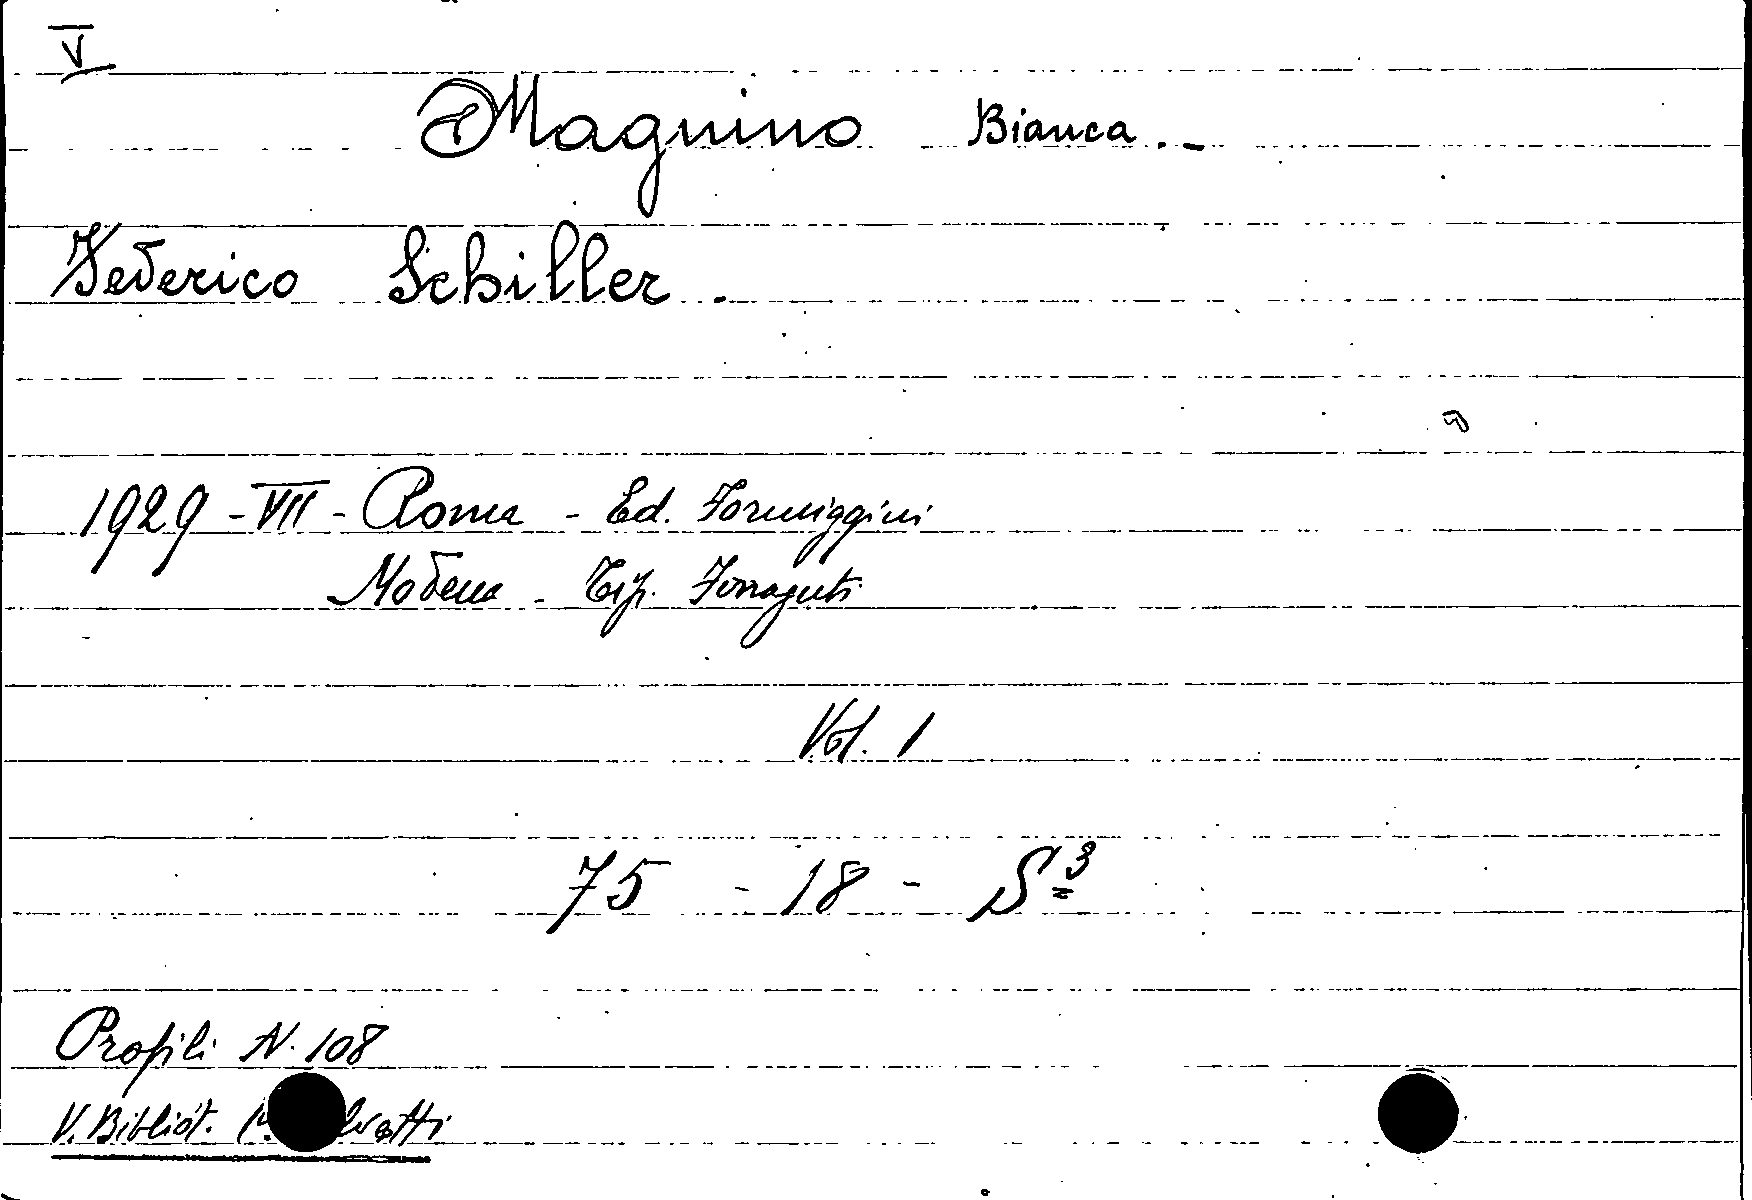 V
Magnino Bianca. -
Federico Schiller.
1929 - VII - Roma - Ed. Formiggini
Modena - Tip. Ferraguti
Vol. 1
75 - 18 - S³
Profili N. 108
V. Bibliot.